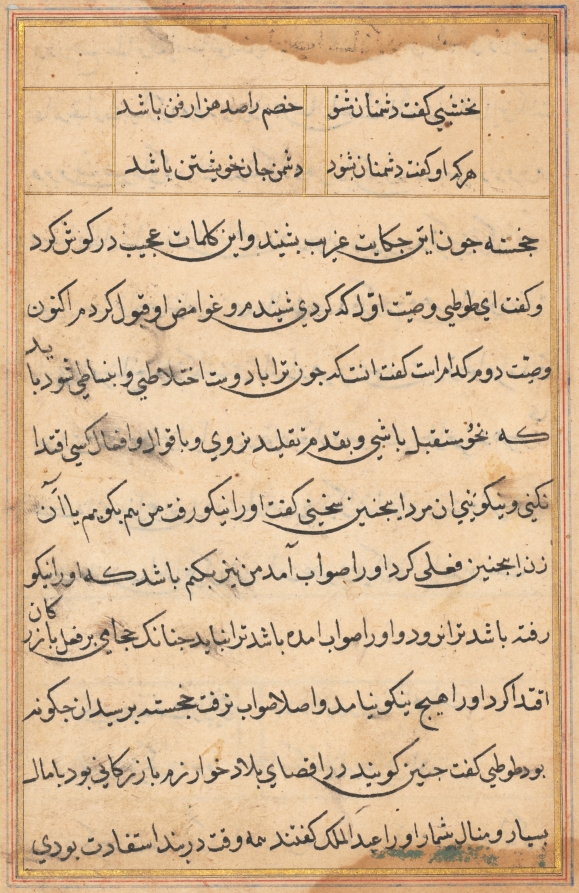 نخشبی گفت دشمنان شنو خصم را صد هزار فن باشد
هرکه او گفت دشمنان بشنود دشمن جان خویشتن باشد
خجسته جون این حکایت غریب بشیند و این کلمات عجیب در کوش کرد
و کفت ای طوطی وصیّت اوّل که کردی شیندم و غوامض او قبول کردم اکنون
وصیّت دوم کدام است کفت انت که جون ترا با دوست اختلاطی و ابنساطی شود باید
که بخو مستقبل باشی و بقدم تقلید نروی و باقوال و افعال کسی اقتدا
نکنی و نیکویی ان مرد اینجنین سخنی کفت او را نیکو رفت من هم بکویم یا آن
زن اینجنین فعلی کرد او را صواب آمد من نیز بکنم باشد که او را نیکو
رفته باشد ترا نرود و او را صواب امده باشد ترا نیاید جنانک حجامی بر فعل بازرکان
اقتدا کرد او را هیج نیکو نیامد و اصلا صواب نرفت خجسته برسید ان جکونه
بود طوطی کفت جنین کویند در اقصای بلاد خوارزم بازرکانی بود با مال
بسیار و منال شمار او را عبد الملک کفتند همه وقت در بند استفادت بودی